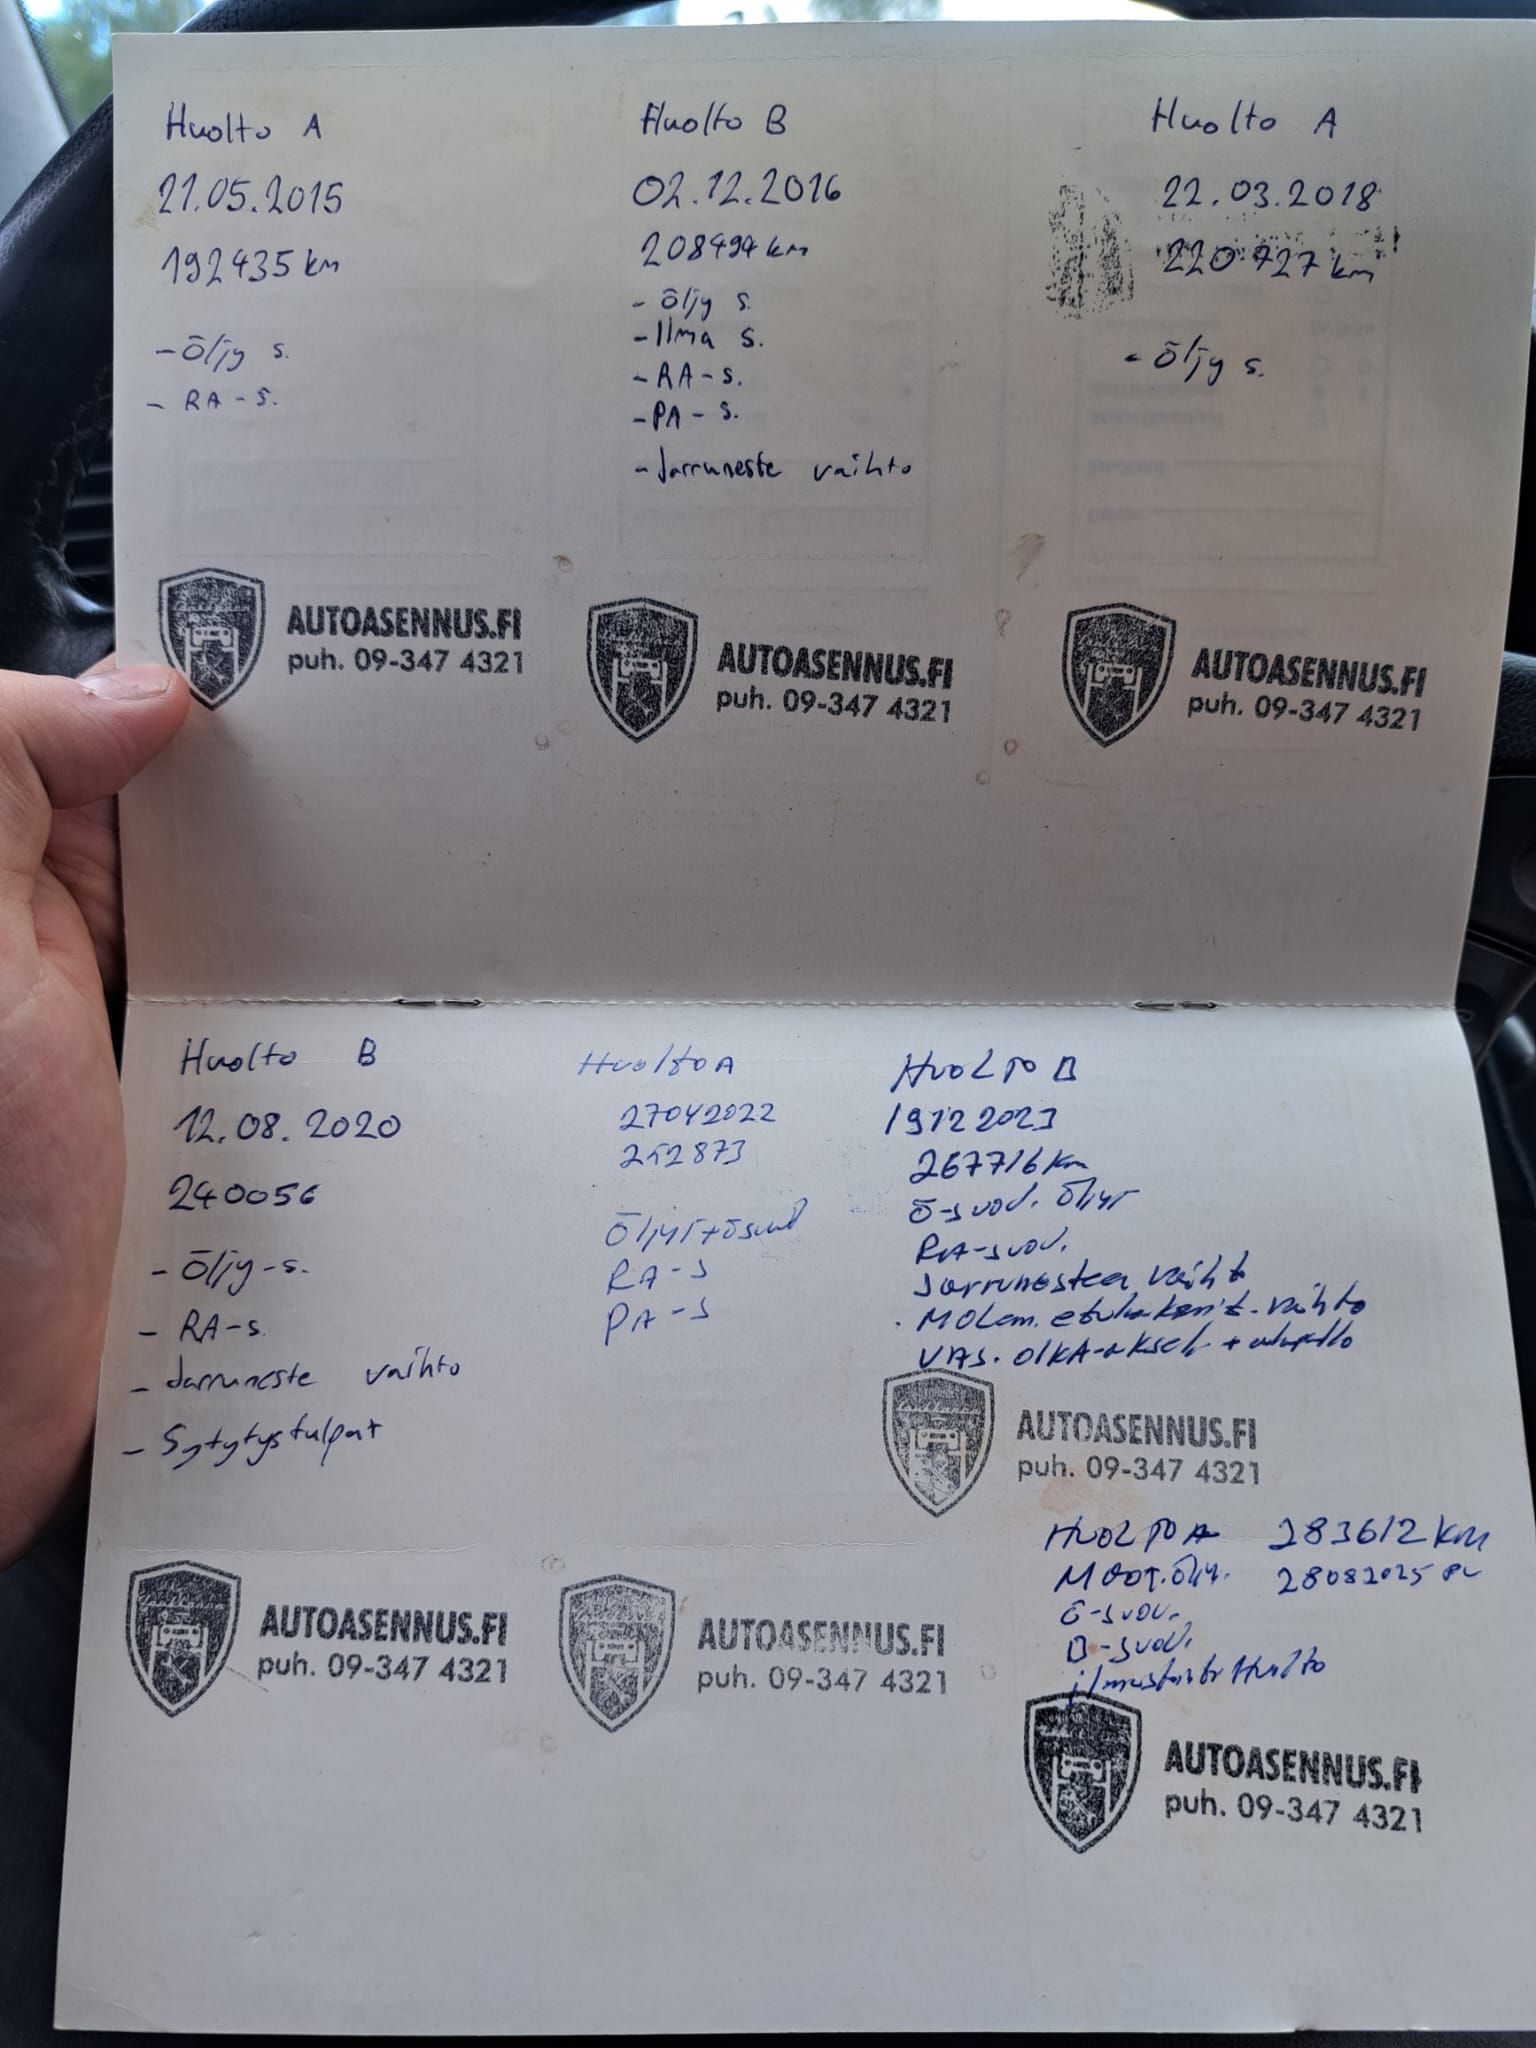 Huolto A
21.05.2015
192435 km
- Öljy s.
- RA-s.
AUTOASENNUS.FI
puh. 09-347 4321
Huolto B
02.12.2016
208494 km
- Öljy s.
- Ilma s.
- RA-s.
- PA-s.
- Jarruneste vaihto
AUTOASENNUS.FI
puh. 09-347 4321
Huolto A
22.03.2018
220 727 km
- Öljy s.
AUTOASENNUS.FI
puh. 09-347 4321
Huolto B
12.08.2020
240056
- Öljy-s.
- RA-s.
- Jarruneste vaihto
- Sytytystulpat
AUTOASENNUS.FI
puh. 09-347 4321
Huolto A
27042022
252873
Öljyt+ösuod
RA-s
PA-s
AUTOASENNUS.FI
puh. 09-347 4321
HUOLTO B
19122023
267716 km
Ö-suod. Öljyt
RA-suod.
Jarrunesteen vaiht
. MOLEM. vaihto
VAS. OLKA-akseli +
AUTOASENNUS.FI
puh. 09-347 4321
HUOLTO A 283612 km
Moot. Öljy. 28082025
Ö-suod.
B-suod.
ilmastointi Huolto
AUTOASENNUS.FI
puh. 09-347 4321